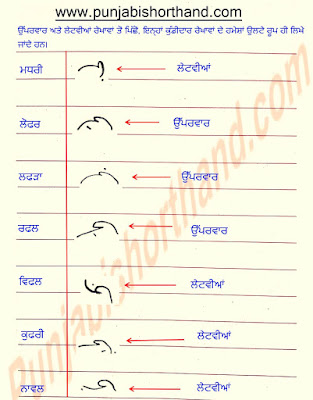 www.punjabishorthand.com
ਉੱਪਰਵਾਰ ਅਤੇ ਲੇਟਵੀਆਂ ਰੇਖਾਵਾਂ ਤੋਂ ਪਿੱਛੋਂ, ਇਨ੍ਹਾਂ ਕੁੰਡੀਦਾਰ ਰੇਖਾਵਾਂ ਦੇ ਹਮੇਸ਼ਾਂ ਉਲਟੇ ਰੂਪ ਹੀ ਲਿਖੇ
ਜਾਂਦੇ ਹਨ।
ਮਧਰੀ ਲੇਟਵੀਆਂ
ਲੋਫਰ ਉੱਪਰਵਾਰ
ਲਫੜਾ ਉੱਪਰਵਾਰ
ਰਫਲ ਉੱਪਰਵਾਰ
ਵਿਫਲ ਲੇਟਵੀਆਂ
ਕੁਫਰੀ ਲੇਟਵੀਆਂ
ਨਾਵਲ ਲੇਟਵੀਆਂ
Punjabishorthand.com